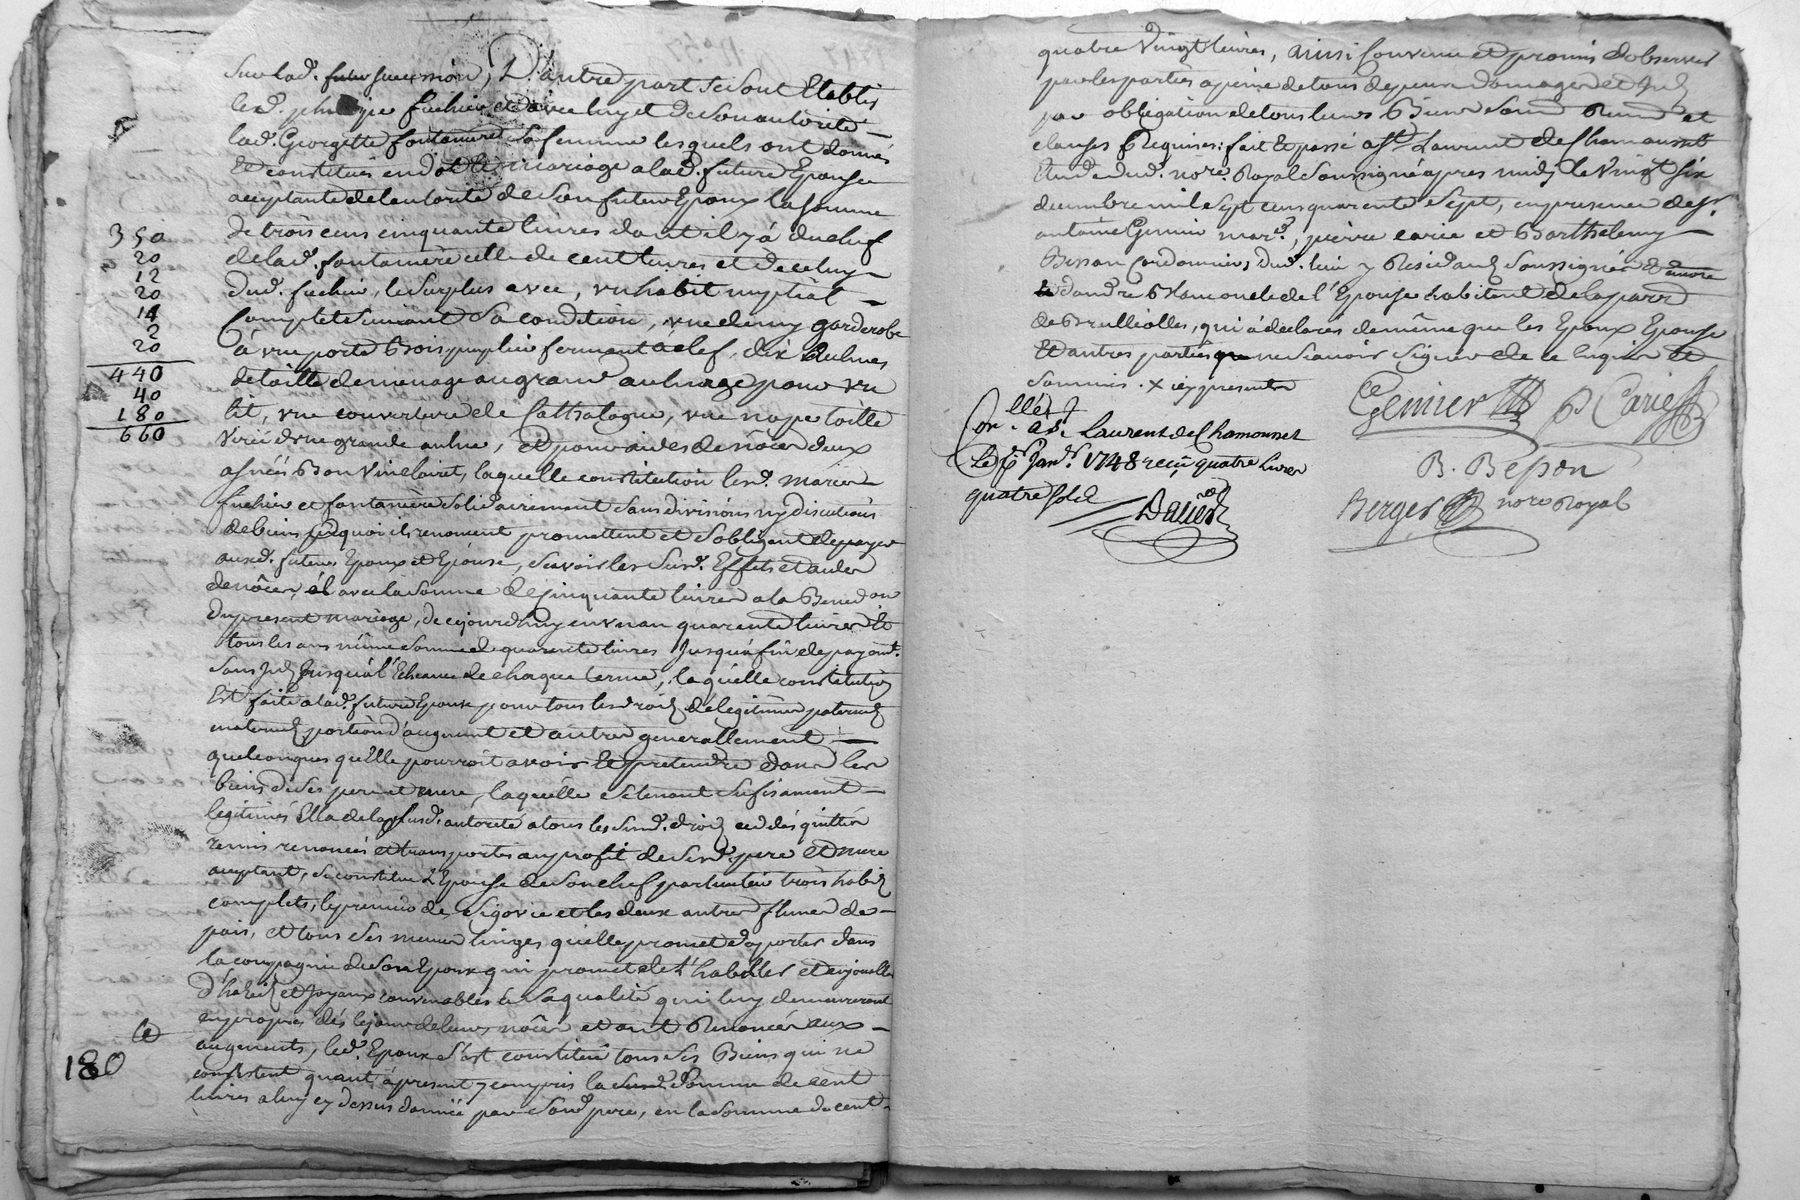 Sur lad. future succession, D'autre part se sont Etablis
led. philippe fuchier et avec luy et de son autorité
lad. Georgette fontaniere sa femme lesquels ont donnés
Et constitués en dot et mariage a lad. future Epouse
acceptante de lautorité de Son futur Epoux la somme
350 de trois cens cinquante livres dont il y á du chef
20 de lad. fontaniere celle de cent livres et de celuy
12 dud. fuchier, le Surplus avec, un habit nuptial
20
14 Complet Suivant Sa condition, une demy garderobe
2
20 á une porte bois peuplier fermant a clef, dix Aulnes
440 de toille de menage au grand aulnage pour un
40
180 lit, une couverture de Cathalogne, une nape toille
660 d'une grande aulne, Et pour aides de nôces deux
asnées Bon vin clairet, laquelle constitution lesd. mariés
fuchier et fontaniere Solidairement Sans division ny discution
de biens a quoi ils renoncent promettent et s'obligent de payer
auxd. futurs Epoux et Epouse, Scavoir les Susd. Effets et aides
de nôces, avec la somme de cinquante livres a la Bened.on
du present mariage, de cejourdhuy en un an quarente livres Et
tous les ans même somme de quarente livres Jusquá fin de payemt.
Sans Jnt. Jusquá l'Echeance de chaque terme, laquelle constitution
Est faite a lad. future Epouse pour tous les droits de legitime paternels
maternels portion d'augment et autres generallement
quelconques qu'Elle pourroit avoir Et pretendre dans les
biens de Ses pere et mere, laquelle Se tenant Sufisament
legitimée Ella de la susd. autorité a tous les Susd. droits quittés
remis renoncés et transportés au profit de Sesd. pere et mere
acceptant, Se constitue l'Epouse de Son chef particulier trois habits
complets, le premier de Sigovie et les deux autres
pais, et tous ses menus linges qu'elle promet d'aporter dans
la compagnie de Son Epoux qui promet de l'habiller et enjoualler
d'habits et Joyaux convenables á Sa qualité qui luy demeureront
en propres dés le jour de leurs nôces et ont Renoncés aux
augments, led. Epoux s'est constitué tous ses Biens qui ne
180 consistent quant á present y compris la Susd. Somme de cent
livres a luy cy dessus donnée par Sond. pere, en la Somme de cent
quatre Vingt livres, Ainsi Convenu et promis d'observer
par les parties a peine de tous depens domages et Jnt.
par obligation de tous leurs Biens
clauses Requises: fait Et passé a St. Laurent de Chamousset
Etude dud. nore. Royal Soussigné apres midy le Vingt Six
decembre mil Sept cens quarente Sept, en presence de Sr.
antoine Gemier mard., pierre carie et Barthelemy
Besson Cordonniers dud. lieu y Residants Soussignés
de l'Epouse habitant de la parr.
de Brulliolles, qui á declaré de même que les Epoux Epouse
Et autres parties ne Scavoir Signer de ce Enquis et
Sommés. x icy presents
Gemier P Carie
B. Besson
Berger nore Royal
Con.llé a St. Laurent de Chamousset
Le 6 Janr. 1748 reçu quatre livres
quatre sols Dalier